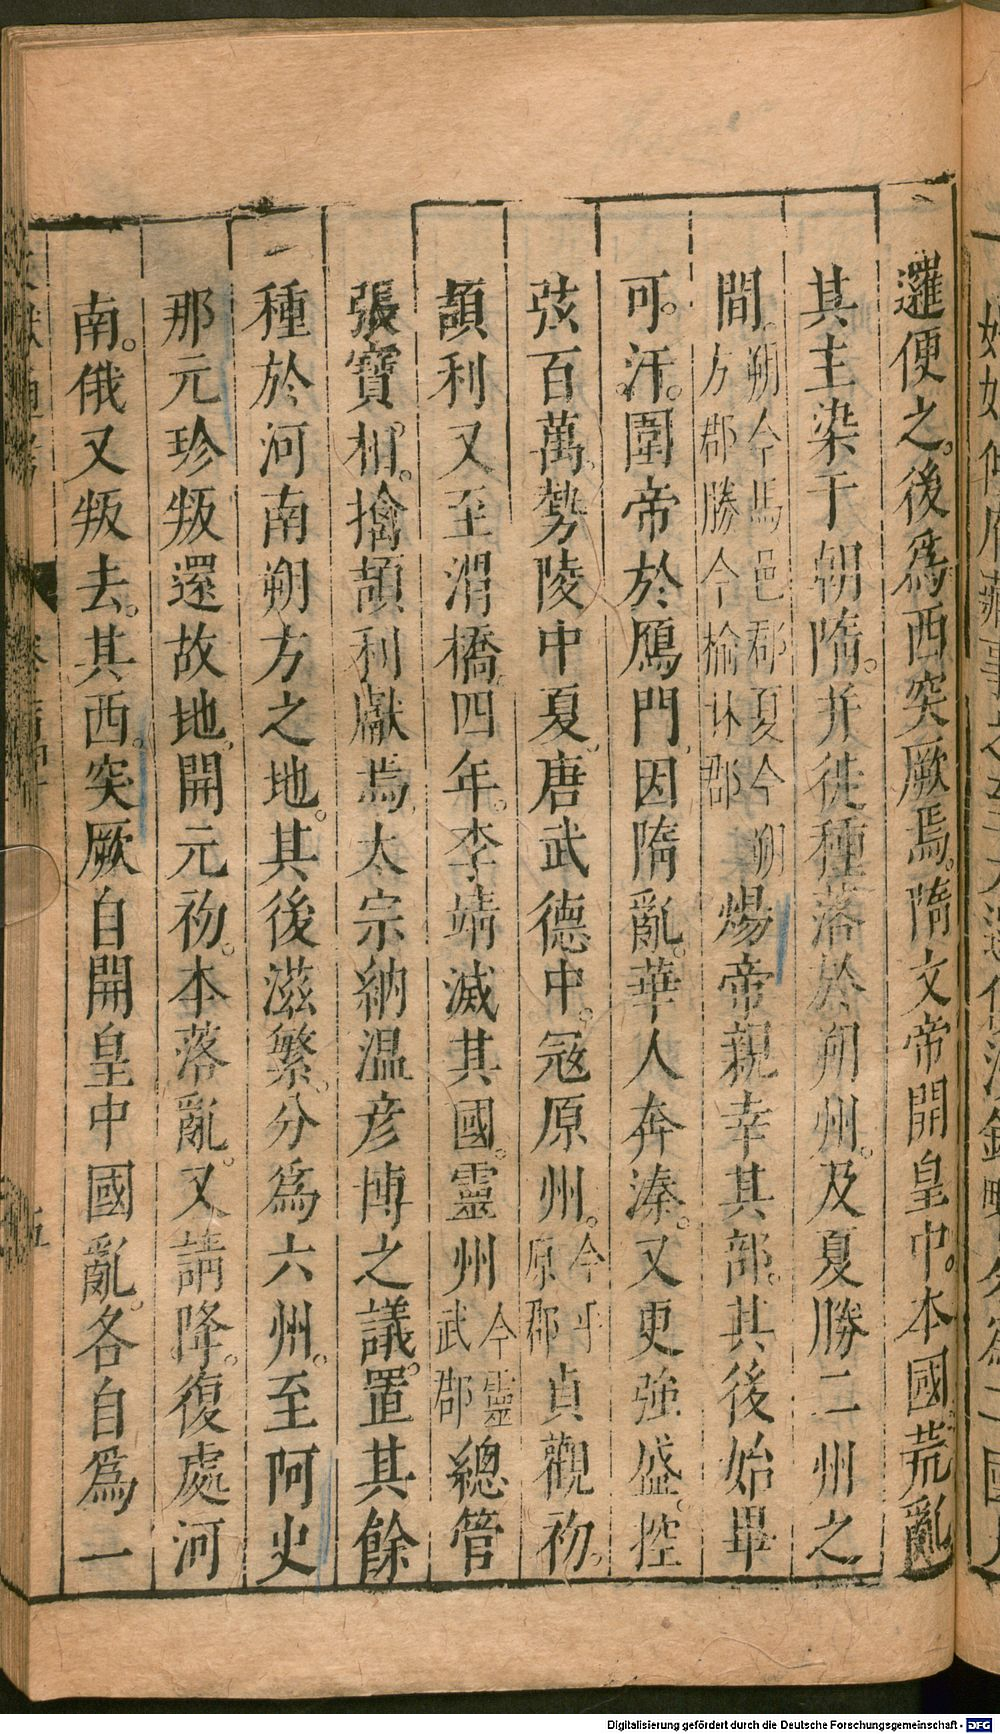 邏便之。後爲西突厥焉。隋文帝開皇中。本國荒亂
其主染干朝隋。并徙種落於朔州。及夏勝二州之
間。朔今馬邑郡夏今朔方郡勝今榆林郡煬帝親幸其部。其後始畢
可。汗。圍帝於鴈門。因隋亂。華人奔湊。又更強盛。控
弦百萬。勢陵中夏。唐武德中。冦原州。今平原郡貞觀初。
頡利又至渭橋。四年。李靖滅其國。靈州今靈武郡總管
張寶相。擒頡利獻焉。太宗納温彦博之議。置其餘
種於河南朔方之地。其後滋繁。分爲六州。至阿史
那元珍叛還故地。開元初。本落亂。又請降。復處河
南。俄又叛去。其西。突厥自開皇中國亂。各自爲一
Digitalisierung gefördert durch die Deutsche Forschungsgemeinschaft - DFG